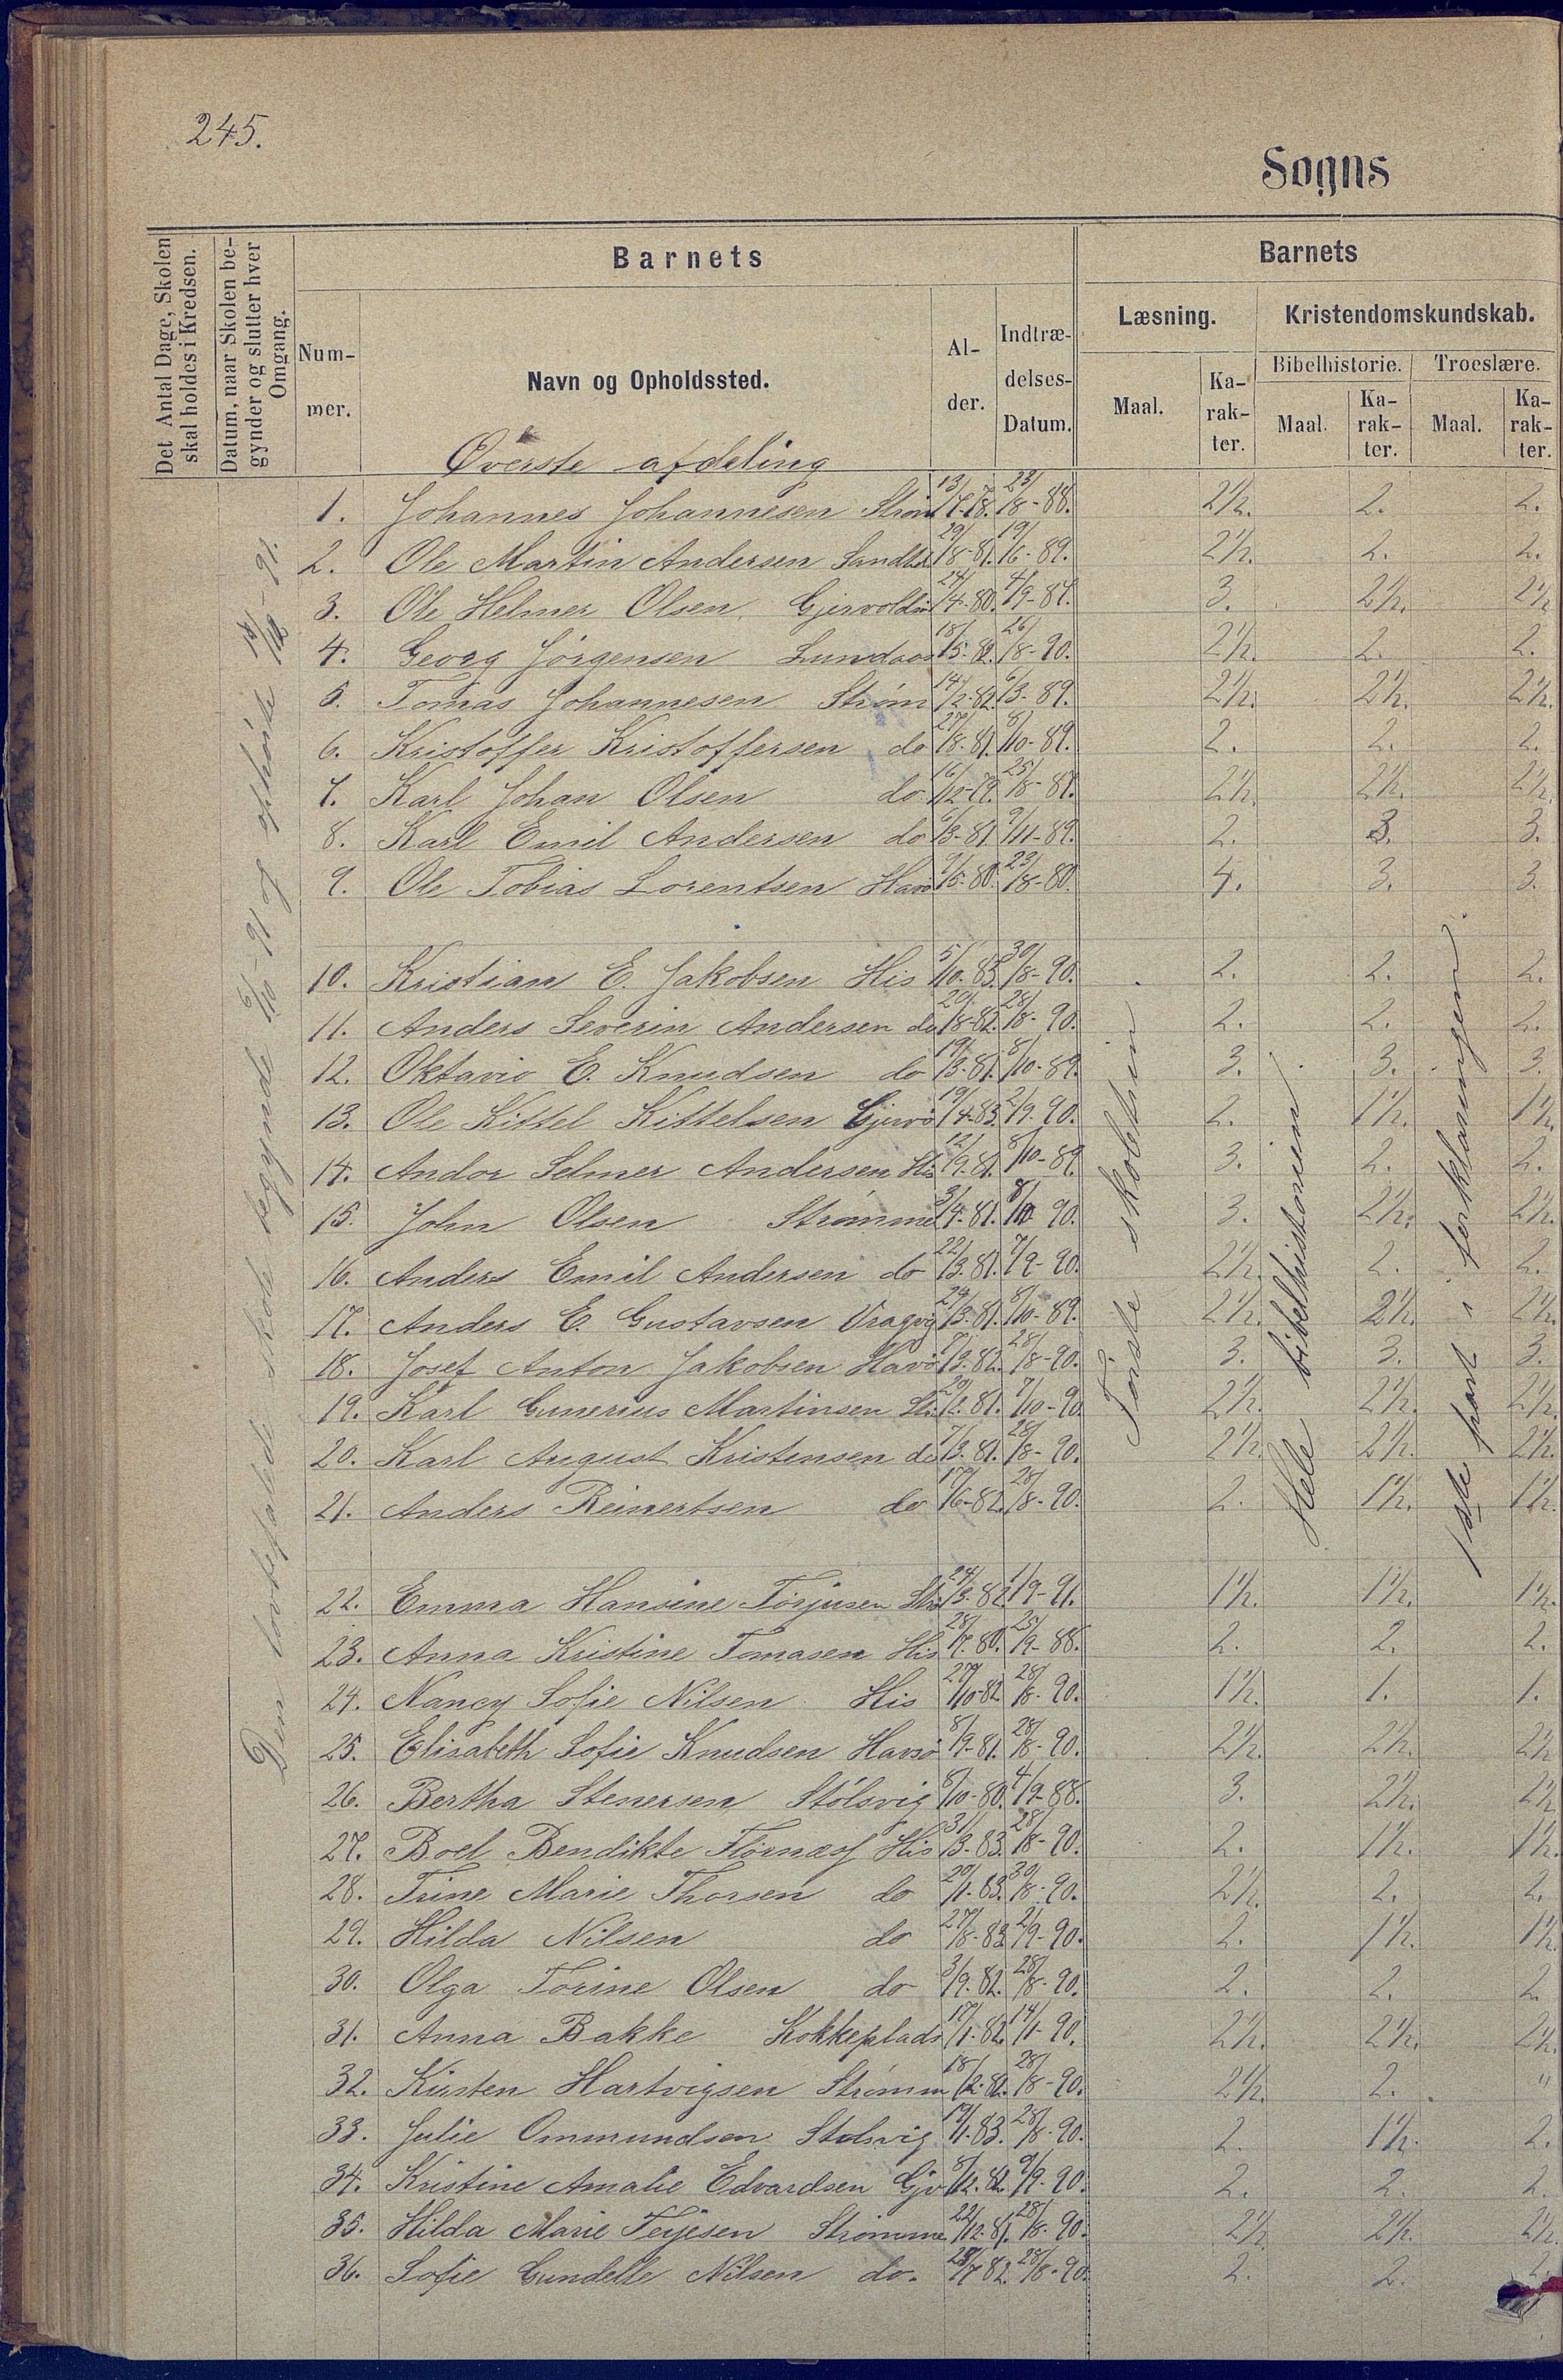 245.
Sogns
Det Antal Dage, Skolen
skal holdes i Kredsen.
Datum, naar Skolen be-
gynder og slutter hver
Omgang.
Barnets
Num-
mer.
Navn og Opholdssted.
Al-
der.
Indtræ-
delses-
Datum.
Barnets
Læsning.
Kristendomskundskab.
Maal.
Ka-
rak-
ter.
Bibelhistorie.
Troeslære.
Maal.
Ka-
rak-
ter.
Maal.
Ka-
rak-
ter.
Den lovbefalede skole begyndte 6/10-91 og ophørte
Øverste afdeling
1. Johannes Johannesen Strøm 23/8-88. 2½. 2. 2.
2. Ole Martin Andersen 29/8-81. 19/6-89. 2½. 2. 2.
3. Ole Helmer Olsen 24/4-80. 3. 2½. 2½
4. Georg Jørgensen 18/5-82. 26/8-90. 2½. 2. 2.
5. Tomas Johannesen Strøm 14/2-82. 6/3-89. 2½. 2½. 2½.
6. Kristoffer Kristoffersen do 27/8-81. 8/10-89. 2. 2. 2.
7. Karl Johan Olsen do 16/12-79. 2½. 2½. 2½.
8. Karl Emil Andersen do 6/3-81. 9/11-89. 2. 3. 3.
9. Ole Tobias Lorentsen Havø 9/5-80. 23/8-80. 4. 3. 3.
10. Kristian E. Jakobsen His 5/10-83. 30/8-90. 2. 2. 2.
11. Anders Severin Andersen do 20/8-82. 28/8-90. 2. 2. 2.
12. Oktavio E. Knudsen do 19/3-81. 8/10-89. 3. 3. 3.
13. Ole Kittel Kittelsen Gjervo 19/4-83. 2/9-90. 2. 1½. 1½.
14. Andor Selmer Andersen His 12/9-81. 8/10-89. 3. 2. 2.
15. John Olsen Strømme 3/4-81. 8/10-90. 3. 2½. 2½.
16. Anders Emil Andersen do 22/3-81. 7/9-90. 2½. 2. 2.
17. Anders E. Gustavsen Vragvig 8/10-89. 2½. 2½. 2½.
18. Josef Anton Jakobsen Havø 28/8-90. 3. 3. 3.
19. Karl Gunerius Martinsen 7/10-90 2½. 2½. 2½.
20. Karl August Kristensen do 7/3-81. 28/8-90. 2½. 2½. 2½.
21. Anders Reinertsen do 17/6-82. 28/8-90. 2. 1½. 1½.
22. Emma Hansine Torjusen 24/3-82. 1/9-91. 1½. 1½. 1½.
23. Anna Kristine Tomasen His 28/7-80. 25/9-88. 2. 2. 2.
24. Nancy Sofie Nilsen His 27/10-82 28/8-90. 1½. 1. 1.
25. Elisabeth Sofie Knudsen Havsø 8/9-81. 28/8-90. 2½. 2½. 2½
26. Bertha Stenersen Stølsvig 8/10-80. 4/9-88. 3. 2½. 2½
27. Boel Bendikte His 31/3-83. 28/8-90. 2. 1½. 1½.
28. Trine Marie Thorsen do 20/1-83. 30/8-90. 2½. 2. 2.
29. Hilda Nilsen do 27/8-83 2/9-90. 2. 1½. 1½.
30. Olga Torine Olsen do 3/9-82. 28/8-90. 2. 2. 2
31. Anna Bakke Kokkeplads 17/1-82. 14/1-90. 2½. 2½. 2½.
32. Kirsten Hartvigsen Strømm 18/2-82. 28/8-90. 2½. 2. "
33. Julie Ommundsen Stølsvig 28/8-90. 2. 1½. 2.
34. Kristine Amalie Edvardsen Gjv 8/12-82. 9/9-90. 2. 2. 2.
35. Hilda Marie Terjesen Strømme 22/12-81. 28/8-90. 2½. 2½. 2½
36. Sofie Gundelle Nilsen do. 28/7-82. 28/8-90. 2. 2. 2.
Første skoletrin
Hele bibelhistorien
1ste part i forklaringen